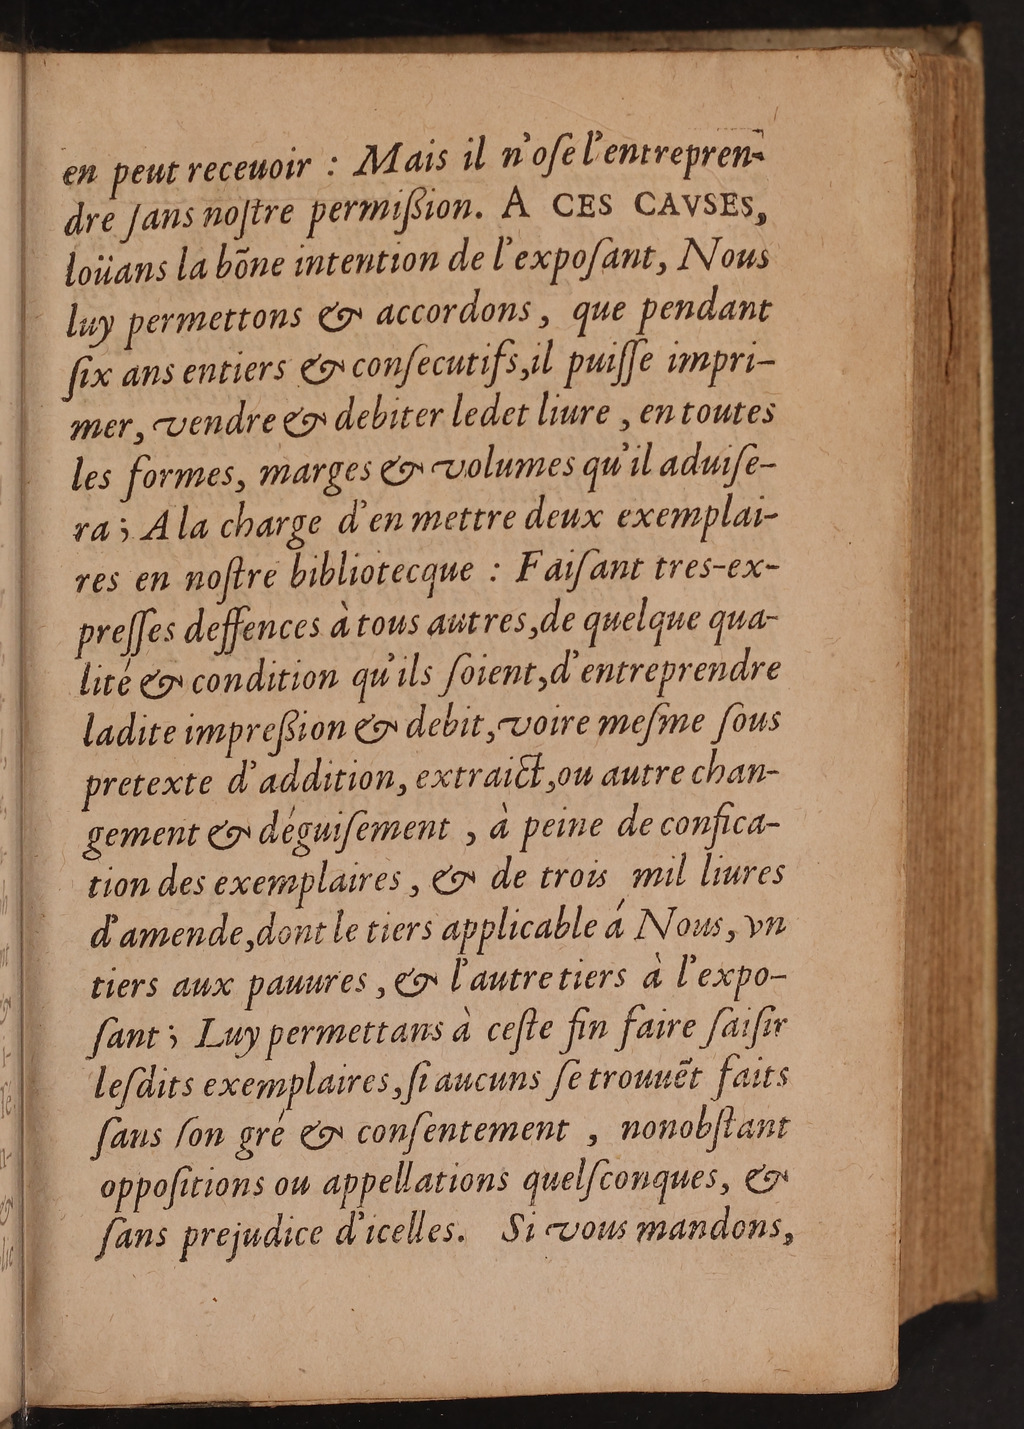 en peut receuoir : Mais il n'oſe l'entrepren-
dre ſans noſtre permiſſion. A CES CAVSES,
loüans la bõne intention de l'expoſant, Nous
luy permettons & accordons, que pendant
ſix ans entiers & conſecutifs, il puiſſe impri-
mer, vendre & debiter ledet liure, en toutes
les formes, marges & volumes qu'il aduiſe-
ra; A la charge d'en mettre deux exemplai-
res en noſtre bibliotecque : Faiſant tres-ex-
preſſes deffences à tous autres, de quelque qua-
lité & condition qu'ils ſoient, d'entreprendre
ladite impreſſion & debit, voire meſme ſous
pretexte d'addition, extraict, ou autre chan-
gement & déguiſement, à peine de confica-
tion des exemplaires, & de trois mil liures
d'amende, dont le tiers applicable á Nous, vn
tiers aux pauures, & l'autre tiers à l'expo-
ſant; Luy permettans à ceſte fin faire ſaiſir
leſdits exemplaires, ſi aucuns ſe trouuẽt faits
ſaus ſon gré & conſentement, nonobſtant
oppoſitions ou appellations quelſconques, &
ſans prejudice d'icelles. Si vous mandons,